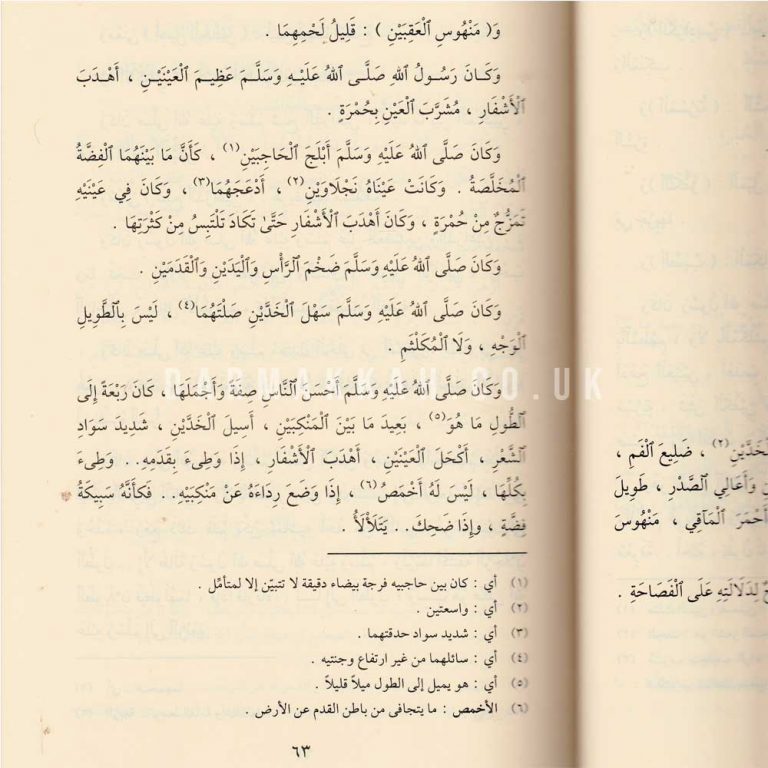 وَ( مَنْهُوسِ ٱلْعَقِبَيْنِ ) : قَلِيلُ لَحْمِهِمَا .
وَكَانَ رَسُولُ ٱللهِ صَلَّى ٱللهُ عَلَيْهِ وَسَلَّمَ عَظِيمَ ٱلْعَيْنَيْنِ ، أَهْدَبَ
ٱلْأَشْفَارِ ، مُشْرَبَ ٱلْعَيْنِ بِحُمْرَةٍ .
وَكَانَ صَلَّى ٱللهُ عَلَيْهِ وَسَلَّمَ أَبْلَجَ ٱلْحَاجِبَيْنِ(١) ، كَأَنَّ مَا بَيْنَهُمَا ٱلْفِضَّةُ
ٱلْمُخَلَّصَةُ . وَكَانَتْ عَيْنَاهُ نَجْلَاوَيْنِ(٢) ، أَدْعَجَهُمَا(٣) ، وَكَانَ فِي عَيْنَيْهِ
تَمَزُّجٌ مِنْ حُمْرَةٍ ، وَكَانَ أَهْدَبَ ٱلْأَشْفَارِ حَتَّىٰ تَكَادَ تَلْتَبِسُ مِنْ كَثْرَتِهَا .
وَكَانَ صَلَّى ٱللهُ عَلَيْهِ وَسَلَّمَ ضَخْمَ ٱلرَّأْسِ وَٱلْيَدَيْنِ وَٱلْقَدَمَيْنِ .
وَكَانَ صَلَّى ٱللهُ عَلَيْهِ وَسَلَّمَ سَهْلَ ٱلْخَدَّيْنِ صَلْتَهُمَا(٤) ، لَيْسَ بِٱلطَّوِيلِ
ٱلْوَجْهِ ، وَلَا ٱلْمُكَلْثَمِ .
DARMAKKAH.CO.UK
وَكَانَ صَلَّى ٱللهُ عَلَيْهِ وَسَلَّمَ أَحْسَنَ ٱلنَّاسِ صِفَةً وَأَجْمَلَهَا ، كَانَ رَبْعَةً إِلَى
ٱلطُّولِ مَا هُوَ(٥) ، بَعِيدَ مَا بَيْنَ ٱلْمَنْكِبَيْنِ ، أَسِيلَ ٱلْخَدَّيْنِ ، شَدِيدَ سَوَادِ
ٱلشَّعْرِ ، أَكْحَلَ ٱلْعَيْنَيْنِ ، أَهْدَبَ ٱلْأَشْفَارِ ، إِذَا وَطِىءَ بِقَدَمِهِ.. وَطِىءَ
بِكُلِّهَا ، لَيْسَ لَهُ أَخْمَصُ(٦) ، إِذَا وَضَعَ رِدَاءَهُ عَنْ مَنْكِبَيْهِ.. فَكَأَنَّهُ سَبِيكَةُ
فِضَّةٍ ، وَإِذَا ضَحِكَ.. يَتَلَأْلَأُ .
(١) أي : كان بين حاجبيه فرجة بيضاء دقيقة لا تتبيّن إلا لمتأمّل .
(٢) أي : واسعتين .
(٣) أي : شديد سواد حدقتهما .
(٤) أي : سائلهما من غير ارتفاع وجنتيه .
(٥) أي : هو يميل إلى الطول ميلاً قليلاً .
(٦) الأخمص : ما يتجافى من باطن القدم عن الأرض .
٦٣
ٱلْخَدَّيْنِ(٢) ، ضَلِيعَ ٱلْفَمِ ،
وَأَعَالِي ٱلصَّدْرِ ، طَوِيلَ
أَحْمَرَ ٱلْمَآقِي ، مَنْهُوسَ
لِدَلَالَتِهِ عَلَى ٱلْفَصَاحَةِ .